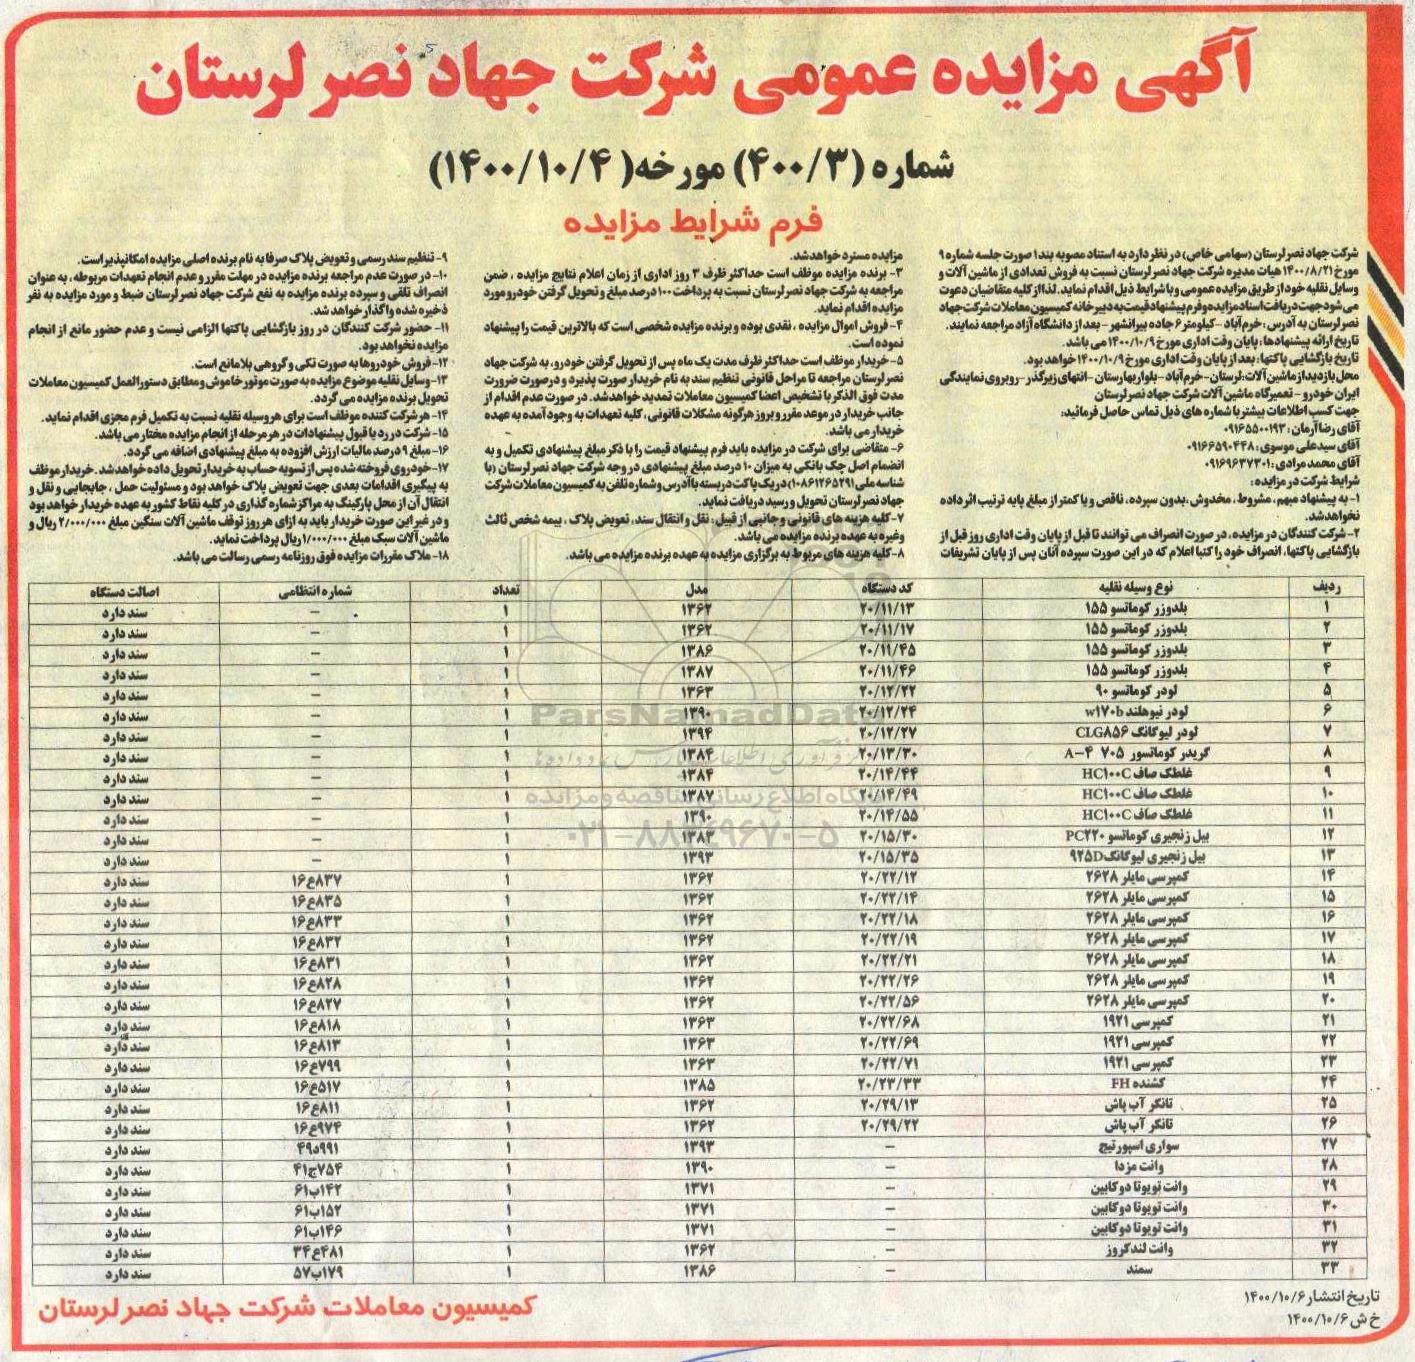 آگهی مزایده عمومی شرکت جهاد نصر لرستان
شماره (۴۰۰/۳) مورخه( ۱۴۰۰/۱۰/۴)
فرم شرایط مزایده
شرکت جهاد نصر لرستان (سهامی خاص) در نظر دارد به استناد مصوبه بند۱ صورت جلسه شماره ۹
مورخ ۱۴۰۰/۸/۲۱ هیات مدیره شرکت جهاد نصر لرستان نسبت به فروش تعدادی از ماشین آلات و
وسایل نقلیه خود از طریق مزایده عمومی و با شرایط ذیل اقدام نماید. لذا از کلیه متقاضیان دعوت
می شود جهت دریافت اسناد مزایده و فرم پیشنهاد قیمت به دبیرخانه کمیسیون معاملات شرکت جهاد
نصر لرستان به آدرس : خرم آباد - کیلومتر ۶ جاده بیرانشهر - بعد از دانشگاه آزاد مراجعه نمایند.
تاریخ ارائه پیشنهادها: پایان وقت اداری مورخ ۱۴۰۰/۱۰/۹ می باشد.
تاریخ بازگشایی پاکتها: بعد از پایان وقت اداری مورخ ۱۴۰۰/۱۰/۹ خواهد بود.
محل بازدید از ماشین آلات: لرستان- خرم آباد - بلوار بهارستان - انتهای زیرگذر - روبروی نمایندگی
ایران خودرو - تعمیرگاه ماشین آلات شرکت جهاد نصر لرستان
جهت کسب اطلاعات بیشتر با شماره های ذیل تماس حاصل فرمائید:
آقای رضا آرمان: ۰۹۱۶۵۵۰۰۱۹۳
آقای سید علی موسوی: ۰۹۱۶۶۵۹۰۴۴۸
آقای محمد مرادی: ۰۹۱۶۹۶۳۷۳۰۱
شرایط شرکت در مزایده :
۱- به پیشنهاد مبهم، مشروط ، مخدوش ،بدون سپرده، ناقص و یا کمتر از مبلغ پایه ترتیب اثر داده
نخواهد شد.
۲- شرکت کنندگان در مزایده، در صورت انصراف می توانند تا قبل از پایان وقت اداری روز قبل از
بازگشایی پاکتها، انصراف خود را کتبا اعلام که در این صورت سپرده آنان پس از پایان تشریفات
مزایده مسترد خواهد شد.
۳- برنده مزایده موظف است حداکثر ظرف ۳ روز اداری از زمان اعلام نتایج مزایده ، ضمن
مراجعه به شرکت جهاد نصر لرستان نسبت به پرداخت ۱۰۰ درصد مبلغ و تحویل گرفتن خودرو مورد
مزایده اقدام نماید.
۴- فروش اموال مزایده ، نقدی بوده و برنده مزایده شخصی است که بالاترین قیمت را پیشنهاد
نموده است.
۵- خریدار موظف است حداکثر ظرف مدت یک ماه پس از تحویل گرفتن خودرو، به شرکت جهاد
نصر لرستان مراجعه تا مراحل قانونی تنظیم سند به نام خریدار صورت پذیرد و در صورت ضرورت
مدت فوق الذکر با تشخیص اعضا کمیسیون معاملات تمدید خواهد شد. در صورت عدم اقدام از
جانب خریدار در موعد مقرر و بروز هرگونه مشکلات قانونی، کلیه تعهدات به وجود آمده به عهده
خریدار می باشد.
۶- متقاضی برای شرکت در مزایده باید فرم پیشنهاد قیمت را با ذکر مبلغ پیشنهادی تکمیل و به
انضمام اصل چک بانکی به میزان ۱۰ درصد مبلغ پیشنهادی در وجه شرکت جهاد نصر لرستان (با
شناسه ملی ۱۰۸۶۱۲۶۵۲۹۱) در یک پاکت دربسته با آدرس و شماره تلفن به کمیسیون معاملات شرکت
جهاد نصر لرستان تحویل و رسید دریافت نماید.
۷-کلیه هزینه های قانونی و جانبی از قبیل: نقل و انتقال سند، تعویض پلاک ، بیمه شخص ثالث
وغیره به عهده برنده مزایده می باشد.
۸- کلیه هزینه های مربوط به برگزاری مزایده به عهده برنده مزایده می باشد.
۹- تنظیم سند رسمی و تعویض پلاک صرفا به نام برنده اصلی مزایده امکانپذیر است.
۱۰- در صورت عدم مراجعه برنده مزایده در مهلت مقرر و عدم انجام تعهدات مربوطه، به عنوان
انصراف تلقی و سپرده برنده مزایده به نفع شرکت جهاد نصر لرستان ضبط و مورد مزایده به نفر
ذخیره شده واگذار خواهد شد.
۱۱- حضور شرکت کنندگان در روز بازگشایی پاکتها الزامی نیست و عدم حضور مانع از انجام
مزایده نخواهد بود.
۱۲- فروش خودروها به صورت تکی و گروهی بلامانع است.
۱۳- وسایل نقلیه موضوع مزایده به صورت موتور خاموش و مطابق دستورالعمل کمیسیون معاملات
تحویل برنده مزایده می گردد.
۱۴- هر شرکت کننده موظف است برای هر وسیله نقلیه نسبت به تکمیل فرم مجزی اقدام نماید.
۱۵- شرکت در رد یا قبول پیشنهادات در هر مرحله از انجام مزایده مختار می باشد.
۱۶- مبلغ ۹ درصد مالیات ارزش افزوده به مبلغ پیشنهادی اضافه می گردد.
۱۷- خودروی فروخته شده پس از تسویه حساب به خریدار تحویل داده خواهد شد . خریدار موظف
به پیگیری اقدامات بعدی جهت تعویض پلاک خواهد بود و مسئولیت حمل ، جابجایی و نقل و
انتقال آن از محل پارکینگ به مراکز شماره گذاری در کلیه نقاط کشور به عهده خریدار خواهد بود
و در غیر این صورت خریدار باید به ازای هر روز توقف ماشین آلات سنگین مبلغ ۲/۰۰۰/۰۰۰ ریال و
ماشین آلات سبک مبلغ ۱/۰۰۰/۰۰۰ ریال پرداخت نماید.
۱۸- ملاک مقررات مزایده فوق روزنامه رسمی رسالت می باشد.
ردیف نوع وسیله نقلیه کد دستگاه مدل تعداد شماره انتظامی اصالت دستگاه
۱ بلدوزر کوماتسو ۱۵۵ ۲۰/۱۱/۱۳ ۱۳۶۲ ۱ - سند دارد
۲ بلدوزر کوماتسو ۱۵۵ ۲۰/۱۱/۱۷ ۱۳۶۲ ۱ - سند دارد
۳ بلدوزر کوماتسو ۱۵۵ ۲۰/۱۱/۴۵ ۱۳۸۶ ۱ - سند دارد
۴ بلدوزر کوماتسو ۱۵۵ ۲۰/۱۱/۴۶ ۱۳۸۷ ۱ - سند دارد
۵ لودر کوماتسو ۹۰ ۲۰/۱۲/۲۲ ۱۳۶۳ ۱ - سند دارد
۶ لودر نیوهلند w۱۷۰b ۲۰/۱۲/۲۴ ۱۳۹۰ ۱ - سند دارد
۷ لودر لیوگانگ CLG۸۵۶ ۲۰/۱۲/۲۷ ۱۳۹۴ ۱ - سند دارد
۸ گریدر کوماتسور ۷۰۵ A-۴ ۲۰/۱۳/۳۰ ۱۳۸۴ ۱ - سند دارد
۹ غلطک صاف HC۱۰۰C ۲۰/۱۴/۴۴ ۱۳۸۴ ۱ - سند دارد
۱۰ غلطک صاف HC۱۰۰C ۲۰/۱۴/۴۹ ۱۳۸۷ ۱ - سند دارد
۱۱ غلطک صاف HC۱۰۰C ۲۰/۱۴/۵۵ ۱۳۹۰ ۱ - سند دارد
۱۲ بیل زنجیری کوماتسو PC۲۲۰ ۲۰/۱۵/۳۰ ۱۳۸۳ ۱ - سند دارد
۱۳ بیل زنجیری لیوگانگ ۹۲۵D ۲۰/۱۵/۳۵ ۱۳۹۳ ۱ - سند دارد
۱۴ کمپرسی مایلر ۲۶۲۸ ۲۰/۲۲/۱۲ ۱۳۶۲ ۱ ۸۳۷ع۱۶ سند دارد
۱۵ کمپرسی مایلر ۲۶۲۸ ۲۰/۲۲/۱۴ ۱۳۶۲ ۱ ۸۳۵ع۱۶ سند دارد
۱۶ کمپرسی مایلر ۲۶۲۸ ۲۰/۲۲/۱۸ ۱۳۶۲ ۱ ۸۳۳ع۱۶ سند دارد
۱۷ کمپرسی مایلر ۲۶۲۸ ۲۰/۲۲/۱۹ ۱۳۶۲ ۱ ۸۳۲ع۱۶ سند دارد
۱۸ کمپرسی مایلر ۲۶۲۸ ۲۰/۲۲/۲۱ ۱۳۶۲ ۱ ۸۳۱ع۱۶ سند دارد
۱۹ کمپرسی مایلر ۲۶۲۸ ۲۰/۲۲/۲۶ ۱۳۶۲ ۱ ۸۲۸ع۱۶ سند دارد
۲۰ کمپرسی مایلر ۲۶۲۸ ۲۰/۲۲/۵۶ ۱۳۶۲ ۱ ۸۲۷ع۱۶ سند دارد
۲۱ کمپرسی ۱۹۲۱ ۲۰/۲۲/۶۸ ۱۳۶۳ ۱ ۸۱۸ع۱۶ سند دارد
۲۲ کمپرسی ۱۹۲۱ ۲۰/۲۲/۶۹ ۱۳۶۳ ۱ ۸۱۳ع۱۶ سند دارد
۲۳ کمپرسی ۱۹۲۱ ۲۰/۲۲/۷۱ ۱۳۶۳ ۱ ۷۹۹ع۱۶ سند دارد
۲۴ کشنده FH ۲۰/۲۳/۳۳ ۱۳۸۵ ۱ ۵۱۷ع۱۶ سند دارد
۲۵ تانکر آب پاش ۲۰/۲۹/۱۳ ۱۳۶۲ ۱ ۸۱۱ع۱۶ سند دارد
۲۶ تانکر آب پاش ۲۰/۲۹/۲۲ ۱۳۶۲ ۱ ۹۷۴ع۱۶ سند دارد
۲۷ سواری اسپورتیج - ۱۳۹۳ ۱ ۹۹۱د۴۹ سند دارد
۲۸ وانت مزدا - ۱۳۹۰ ۱ ۷۵۴ج۴۱ سند دارد
۲۹ وانت تویوتا دو کابین - ۱۳۷۱ ۱ ۱۴۲ب۶۱ سند دارد
۳۰ وانت تویوتا دو کابین - ۱۳۷۱ ۱ ۱۵۲ب۶۱ سند دارد
۳۱ وانت تویوتا دو کابین - ۱۳۷۱ ۱ ۱۴۶ب۶۱ سند دارد
۳۲ وانت لندکروز - ۱۳۶۲ ۱ ۴۸۱ع۳۴ سند دارد
۳۳ سمند - ۱۳۸۶ ۱ ۱۷۹ب۵۷ سند دارد
ParsNamadData
۰۲۱-۸۸۳۴۹۶۷۰-۵
تاریخ انتشار ۱۴۰۰/۱۰/۶
خ ش ۱۴۰۰/۱۰/۶
کمیسیون معاملات شرکت جهاد نصر لرستان